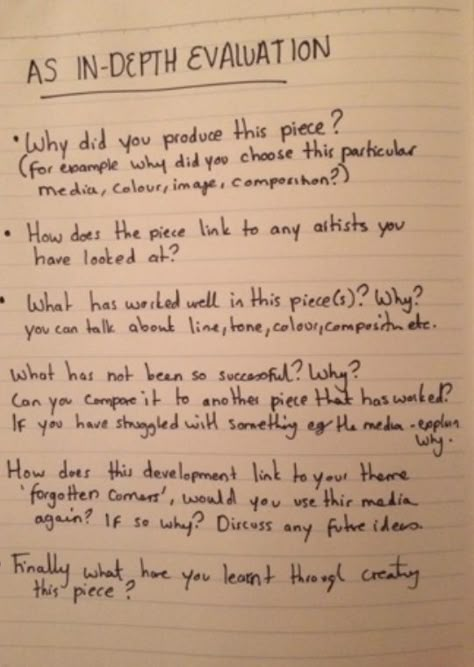 AS IN-DEPTH EVALUATION
• Why did you produce this piece?
(for example why did you choose this particular
media, colour, image, composition?)
• How does the piece link to any artists you
have looked at?
• What has worked well in this piece(s)? Why?
you can talk about line, tone, colour, composition etc.
What has not been so successful? Why?
Can you compare it to another piece that has worked?
If you have struggled with something eg the media - explain
why.
How does this development link to your theme
'forgotten corners', would you use this media
again? If so why? Discuss any future ideas.
• Finally what have you learnt through creating
this piece?